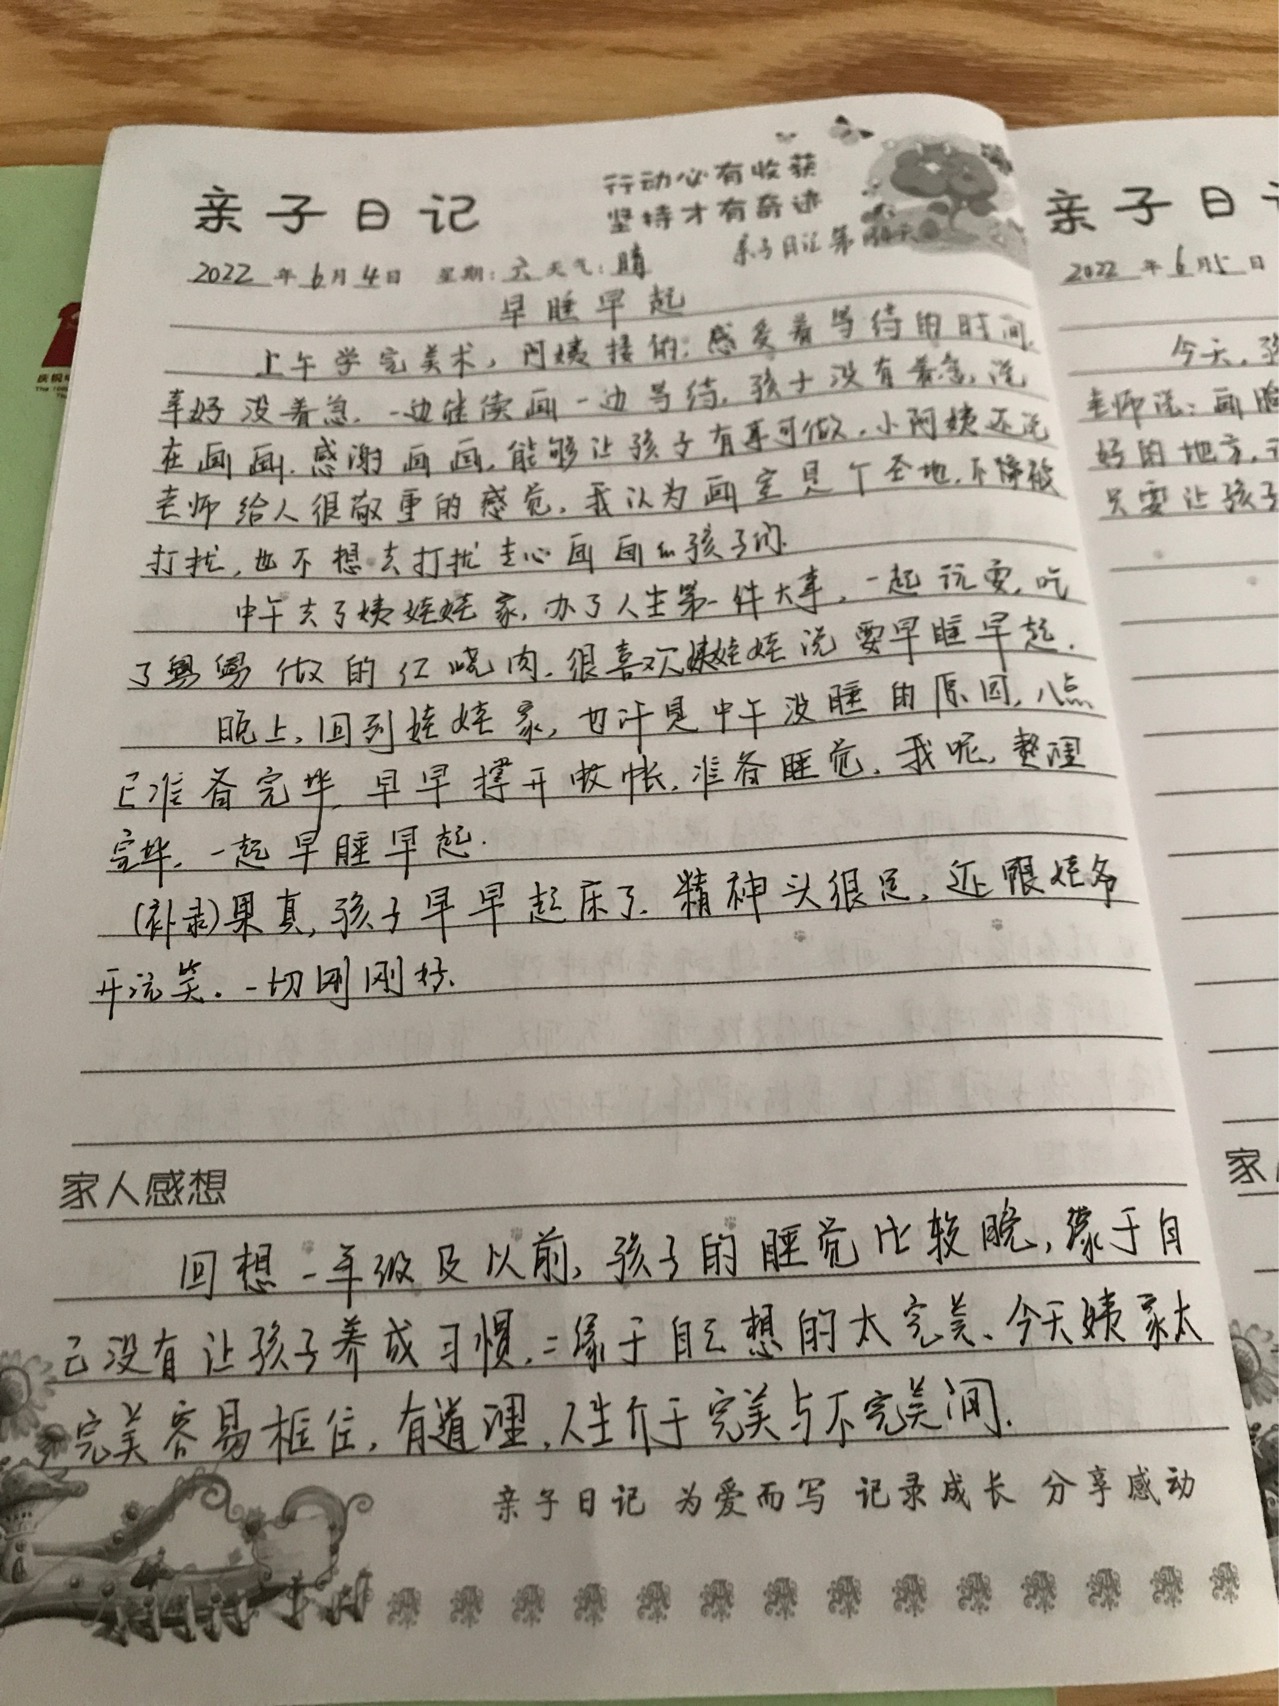 亲子日记
行动必有收获
坚持才有奇迹
亲子日记第
2022年6月4日 星期:六 天气:晴
早睡早起
上午学完美术,阿姨接的,感受着等待的时间,
幸好没着急,一边继续画一边等待,孩子没有着急,说
在画画,感谢画画,能够让孩子有事可做,小阿姨还说
老师给人很敬重的感觉,我认为画室是个圣地,不能被
打扰,也不想去打扰走心画画的孩子们.
中午去了姨娃娃家,办了人生第一件大事,一起玩耍,吃
了舅舅做的红烧肉.很喜欢姨娃娃说要早睡早起.
晚上,回到娃娃家,也许是中午没睡的原因,八点
已准备完毕,早早撑开蚊帐,准备睡觉,我呢,整理
完毕,一起早睡早起.
(补录)果真,孩子早早起床了.精神头很足,还跟娃爷
开玩笑.一切刚刚好.
家人感想
回想一年级及以前,孩子的睡觉比较晚,缘于自
己没有让孩子养成习惯,二缘于自己想的太完美、今天姨家太
完美容易框住,有道理,人生介于完美与不完美间.
亲子日记 为爱而写 记录成长 分享感动
亲子日
2022年6月5日
今天,孩
老师说:画脸
好的地方,
只要让孩子
家